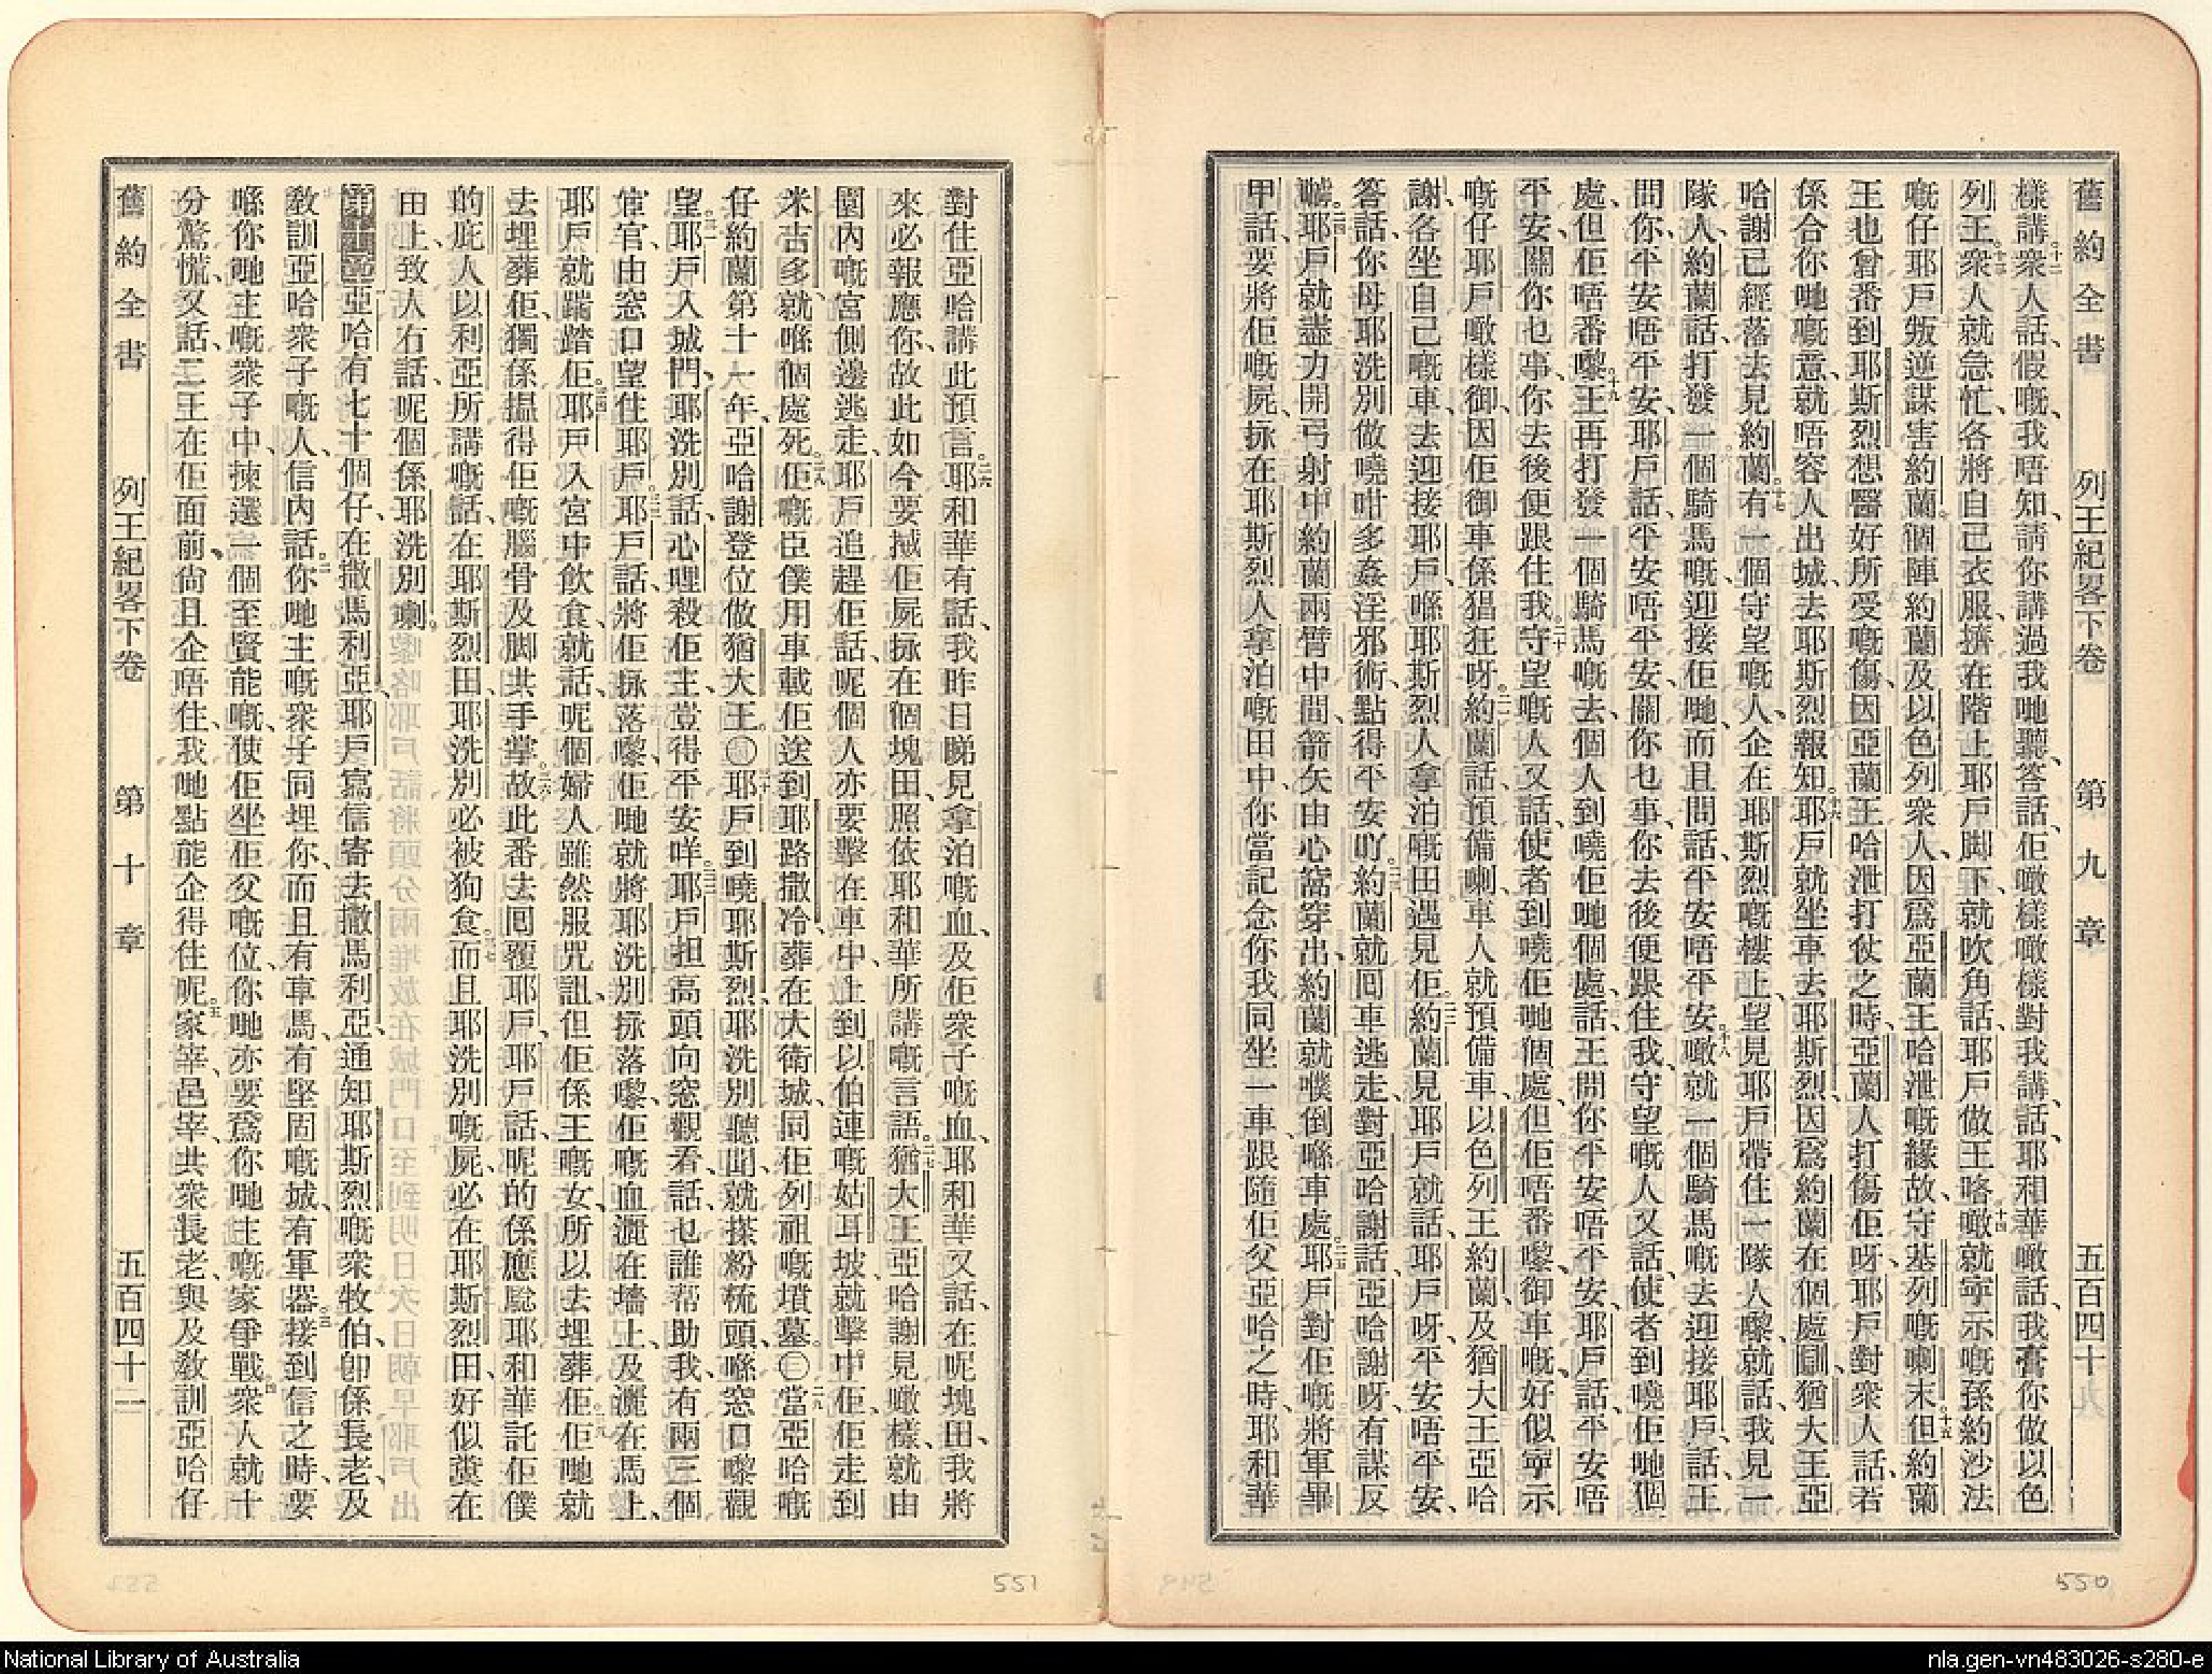 舊約全書 列王紀畧下卷 第九章 五百四十
樣講。十二衆人話、假嘅、我唔知、請你講過我哋聽、答話、佢噉樣噉樣對我講話、耶和華噉話、我膏你做以色
列王。十三衆人就急忙、各將自己衣服、擠在階上、耶戶脚下、就吹角話、耶戶做王咯、十四噉就寧示嘅孫、約沙法
嘅仔耶戶叛逆謀害約蘭。個陣約蘭及以色列衆人、因爲亞蘭王哈泄嘅緣故、守基列嘅喇末、十五但約蘭
王也曾番到耶斯烈、想醫好所受嘅傷、因亞蘭王哈泄打仗之時、亞蘭人打傷佢呀、耶戶對衆人話、若
係合你哋嘅意、就唔容人出城、去耶斯烈報知。十六耶戶就坐車去耶斯烈、因爲約蘭在個處瞓、猶大王亞
哈謝已經落去見約蘭。十七有一個守望嘅人、企在耶斯烈嘅樓上、望見耶戶帶住一隊人嚟、就話、我見一
隊人、約蘭話、打發一個騎馬嘅、迎接佢哋、而且問話、平安唔平安。十八噉就一個騎馬嘅去迎接耶戶、話、王
問你、平安唔平安、耶戶話、平安唔平安、關你乜事、你去後便跟住我、守望嘅人又話、使者到嘵佢哋個
處、但佢唔番嚟。十九王再打發一個騎馬嘅去、個人到嘵佢哋個處、話、王問你平安唔平安、耶戶話、平安唔
平安、關你乜事、你去後便跟住我。二十守望嘅人又話、使者到嘵佢哋個處、但佢唔番嚟、御車嘅、好似寧示
嘅仔耶戶噉樣御、因佢御車係猖狂呀。二一約蘭話、預備喇、車人就預備車、以色列王約蘭及猶大王亞哈
謝、各坐自己嘅車、去迎接耶戶、喺耶斯烈人拿泊嘅田、遇見佢。二二約蘭見耶戶就話、耶戶呀、平安唔平安、
答話、你母耶洗別做嘵咁多姦淫邪術、點得平安吖。二三約蘭就囘車逃走、對亞哈謝話、亞哈謝呀、有謀反
嚹。二四耶戶就盡力開弓、射中約蘭兩臂中間、箭矢由心窩穿出、約蘭就噗倒喺車處。二五耶戶對佢嘅將軍畢
甲話、要將佢嘅屍、拯在耶斯烈人拿泊嘅田中、你當記念你我同坐一車、跟隨佢父亞哈之時、耶和華
550
對住亞哈講此預言。二六耶和華有話、我昨日睇見拿泊嘅血、及佢衆子嘅血、耶和華又話、在呢塊田、我將
來必報應你、故此如今要搣佢屍拯在個塊田、照依耶和華所講嘅言語。二七猶大王亞哈謝見噉樣、就由
園內嘅宮側邊逃走、耶戶追趕佢話、呢個人亦要擊在車中、上到以伯連嘅姑耳坡、就擊中佢、佢走到
米吉多、就喺個處死。二八佢嘅臣僕用車載佢送到耶路撒冷、葬在大衛城、同佢列祖嘅墳墓。〇二九當亞哈嘅
仔約蘭第十一年、亞哈謝登位做猶大王。〇三十耶戶到嘵耶斯烈、耶洗別聽聞、就搽粉梳頭、喺窓口嚟觀
望。三一耶戶入城門、耶洗別話、心哩殺佢主、豈得平安咩。三二耶戶担高頭向窓觀看、話、乜誰帮助我、有兩三個
宦官、由窓口望住耶戶。三三耶戶話、將佢拯落嚟、佢哋就將耶洗別拯落嚟、佢嘅血灑在墻上、及灑在馬上、
耶戶就踹踏佢。三四耶戶入宮中飲食、就話、呢個婦人雖然服咒詛、但佢係王嘅女、所以去埋葬佢。三五佢哋就
去埋葬佢、獨係揾得佢嘅腦骨、及脚共手掌。三六故此番去囘覆耶戶、耶戶話、呢的係應騐耶和華託佢僕
的庇人以利亞所講嘅話、在耶斯烈田、耶洗別必被狗食。三七而且耶洗別嘅屍、必在耶斯烈田、好似糞在
田上、致人冇話、呢個係耶洗別嚹。
第十章 亞哈有七十個仔、在撒馬利亞、耶戶寫信寄去撒馬利亞、通知耶斯烈嘅衆牧伯、卽係長老、及
敎訓亞哈衆子嘅人、信內話。二你哋主嘅衆子同埋你、而且有車馬、有堅固嘅城、有軍器。三接到信之時、要
喺你哋主嘅衆子中、揀選一個至賢能嘅、使佢坐佢父嘅位、你哋亦要爲你哋主嘅家爭戰。四衆人就十
分驚慌、又話、二王在佢面前、尙且企唔住、我哋點能企得住呢。五家宰、邑宰、共衆長老、與及敎訓亞哈仔
舊約全書 列王紀畧下卷 第十章 五百四十一
551
National Library of Australia
nla.gen-vn483026-s280-e